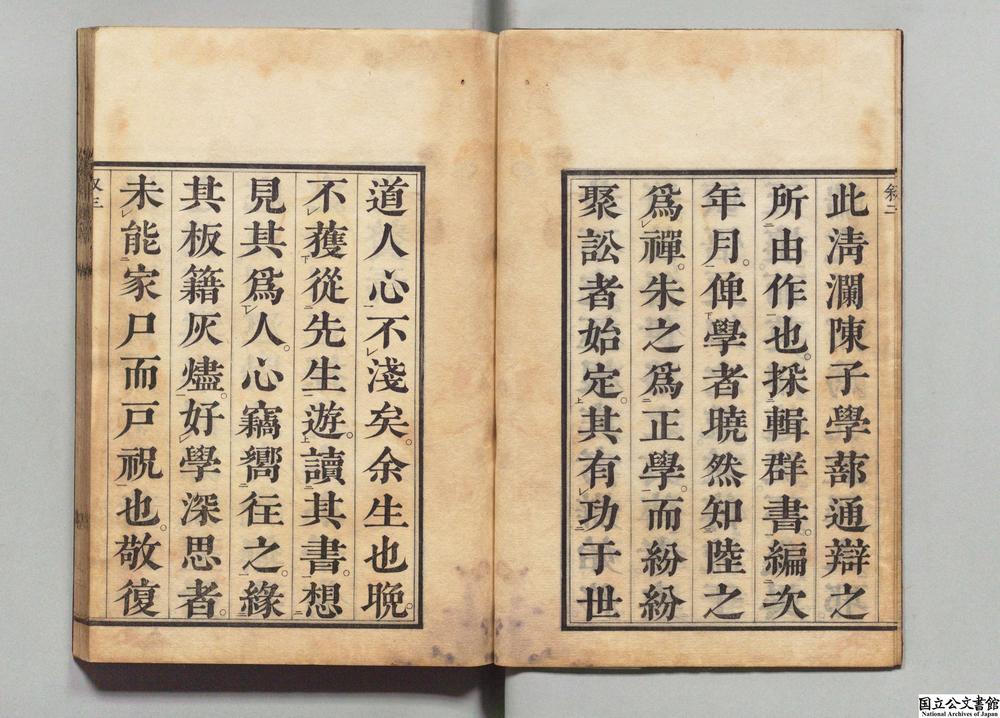 敘二
此淸瀾陳子學蔀通辯之
所由作也採輯群書編次
年月俾學者曉然知陸之
爲禪朱之爲正學而紛紛
聚訟者始定其有功于世
道人心不淺矣余生也晚
不獲從先生遊讀其書想
見其爲人心竊嚮徃之緣
其板籍灰燼好學深思者
未能家尸而戸祝也敬復
三
国立公文書館
National Archives of Japan